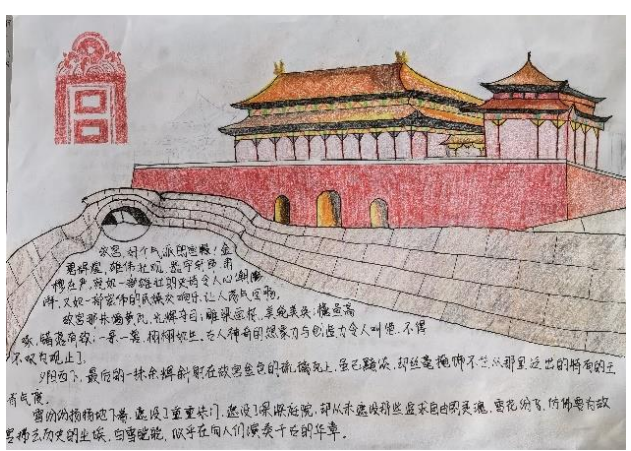 故宫,好个气派的宫殿!金
碧辉煌,雄伟壮观,
又如一部宏伟的民族交响乐,让人荡气回肠。
故宫群殊阁萝瓦,光辉夺目;雕梁画栋,美轮美奂;檐叠高
啄,错落有致;一条一案,栩栩如生。古人神奇的想象力与创造力令人叫绝,不得
不叹为观止]。
夕阳西下,最后的一抹余辉斜射在故宫金色的琉璃瓦上,虽已黯淡,却丝毫掩饰不了从那里迸出的特有的王
者气度。
雪纷纷扬扬地下着,遮没了重重朱门,遮没了深深庭院,却从未遮没那些追求自由的灵魂,雪花纷飞,仿佛要为故
宫拂去历史的尘埃,白雪皑皑,似乎在向人们演奏千古的华章。